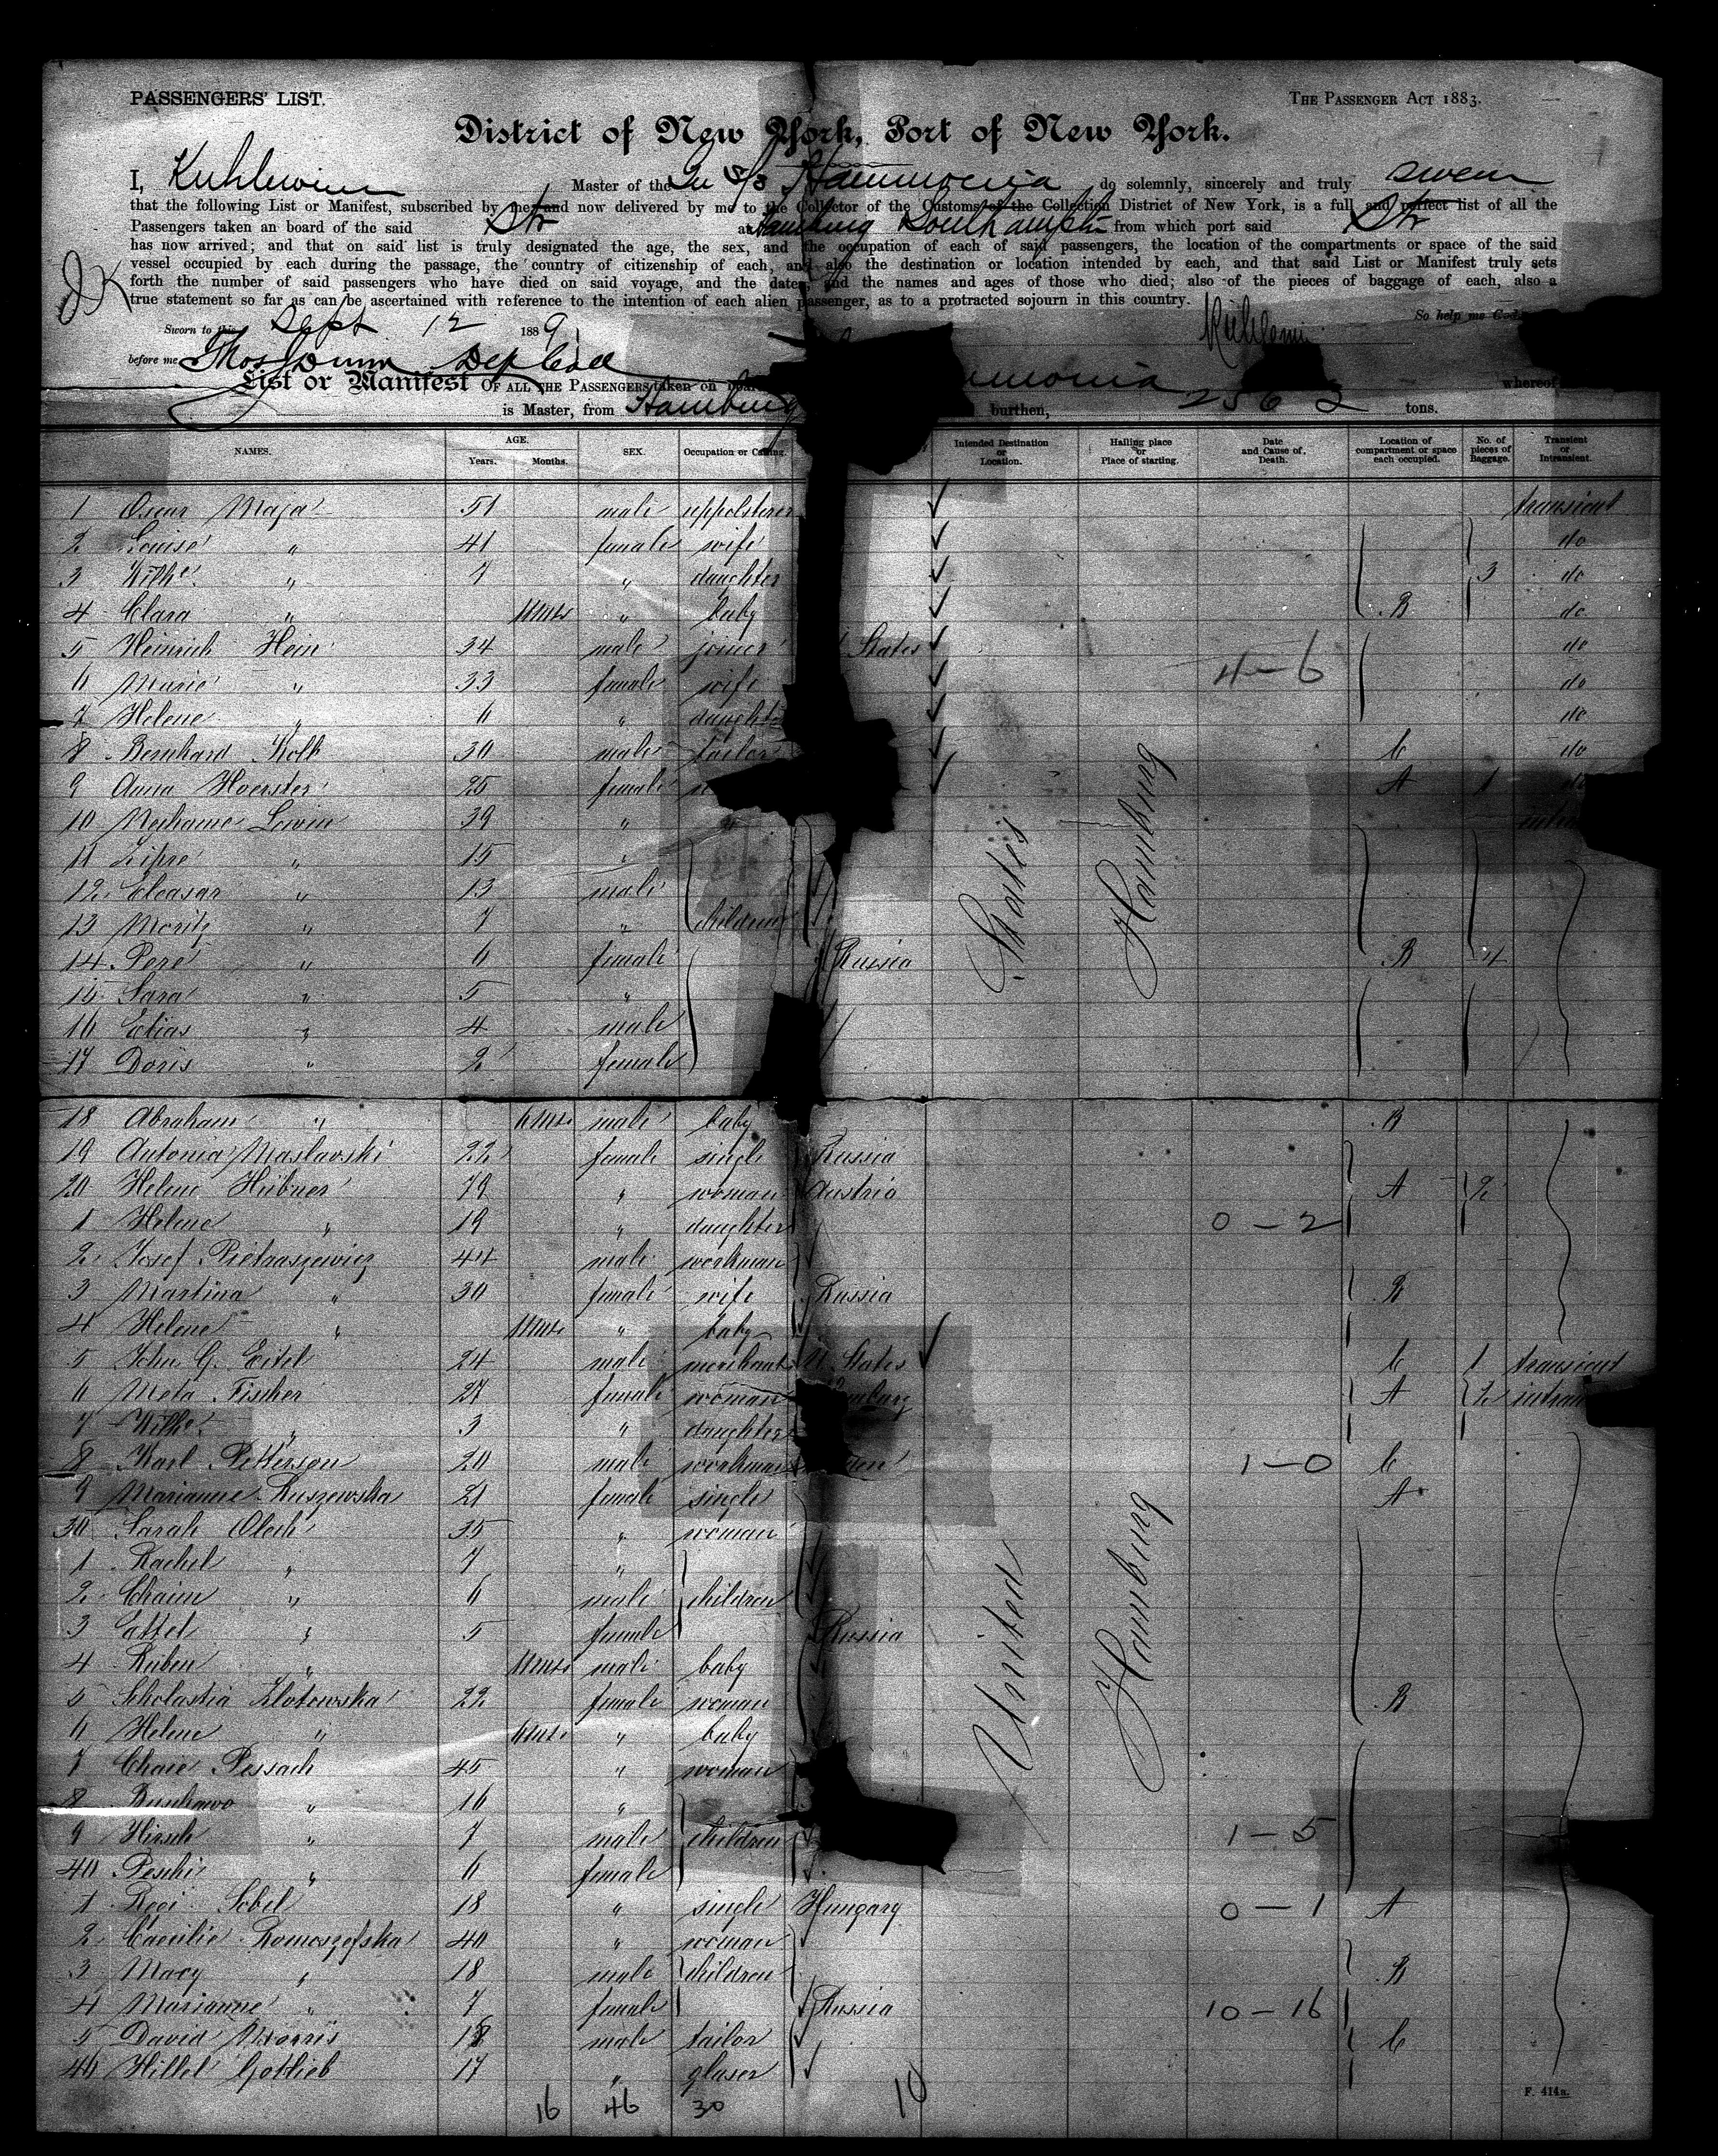 PASSENGERS' LIST.
THE PASSENGER ACT 1883.
District of New York, Port of New York.
I, Kuhlewein Master of the Hammonia do solemnly, sincerely and truly swear
that the following List or Manifest, subscribed by me, and now delivered by me to the Collector of the Customs of the Collection District of New York, is a full and perfect list of all the
Passengers taken on board of the said Str at Hamburg Southampton from which port said Str
has now arrived; and that on said list is truly designated the age, the sex, and the occupation of each of said passengers, the location of the compartments or space of the said
vessel occupied by each during the passage, the country of citizenship of each, and also the destination or location intended by each, and that said List or Manifest truly sets
forth the number of said passengers who have died on said voyage, and the dates, and the names and ages of those who died; also of the pieces of baggage of each, also a
true statement so far as can be ascertained with reference to the intention of each alien passenger, as to a protracted sojourn in this country.
So help me God.
Sworn to this Sept 12 1889
before me Thos Dunn Dep Coll
List or Manifest OF ALL THE PASSENGERS taken on board mmonia whereof
is Master, from Hamburg burthen, tons.
NAMES. AGE. Years. Months. SEX. Occupation or Calling. Intended Destination or Location. Hailing place or Place of starting. Date and Cause of Death. Location of compartment or space each occupied. No. of pieces of Baggage. Transient or Intransient.
1 Oscar Maja 51 male uppolsterer transient
2 Louise " 41 female wife do
3 Wilhe. " 7 " daughter 3 do
4 Clara " 11 mts " baby B do
5 Heinrich Hein 34 male joiner States do
6 Marie " 33 female wife 4-6 do
7 Helene " 6 " daughter do
8 Bernhard Kolb 30 male tailor C do
9 Anna Hoerster 25 female A 1 do
10 Lewin 39 "
11 Zipre " 15 "
12 Eleasar " 13 male
13 Moritz " 7 " children
14 Pere " 6 female Russia B 4
15 Sara " 5 "
16 Elias " 4 male
17 Doris " 2 female
States
Hamburg
18 Abraham " 6 mts. male baby B
19 Antonia Maslavski 22 female single Russia
20 Helene Hübner 79 " woman Austria A 2
1 Helene " 19 " daughter 0-2
2 Josef Pietraszewicz 44 male workman
3 Martina " 30 female wife Russia B
4 Helene " 11 mts " baby
5 John G. Eitel 24 male merchant U. States C 1 transient
6 Meta Fischer 27 female woman A 2
7 Wilhe. " 3 " daughter
8 Karl Petterson 20 male workman 1-0 C
9 Marianne Ruszewska 21 female single A
30 Sarah Olech 35 " woman
1 Rachel " 7 "
2 Chaim " 6 male children
3 Ettel " 5 female Russia
4 Ruben " 11 mts male baby
5 Scholastia Zlotowska 22 female woman B
6 Helene " 6 mts. " baby
7 Chaie Pessach 45 " woman
8 " 16 "
9 Hirsch " 7 male children 1-5
40 Peschi " 6 female
1 Regi Sobel 18 " single Hungary 0-1 A
2 Caecilie Romoszofska 40 " woman
3 Macy " 18 male children B
4 Marianne " 7 female Russia 10-16
5 David Morris 18 male tailor C
46 Hillel Gottlieb 17 " glaser
United
Hamburg
16 46 30 10
F. 414a.